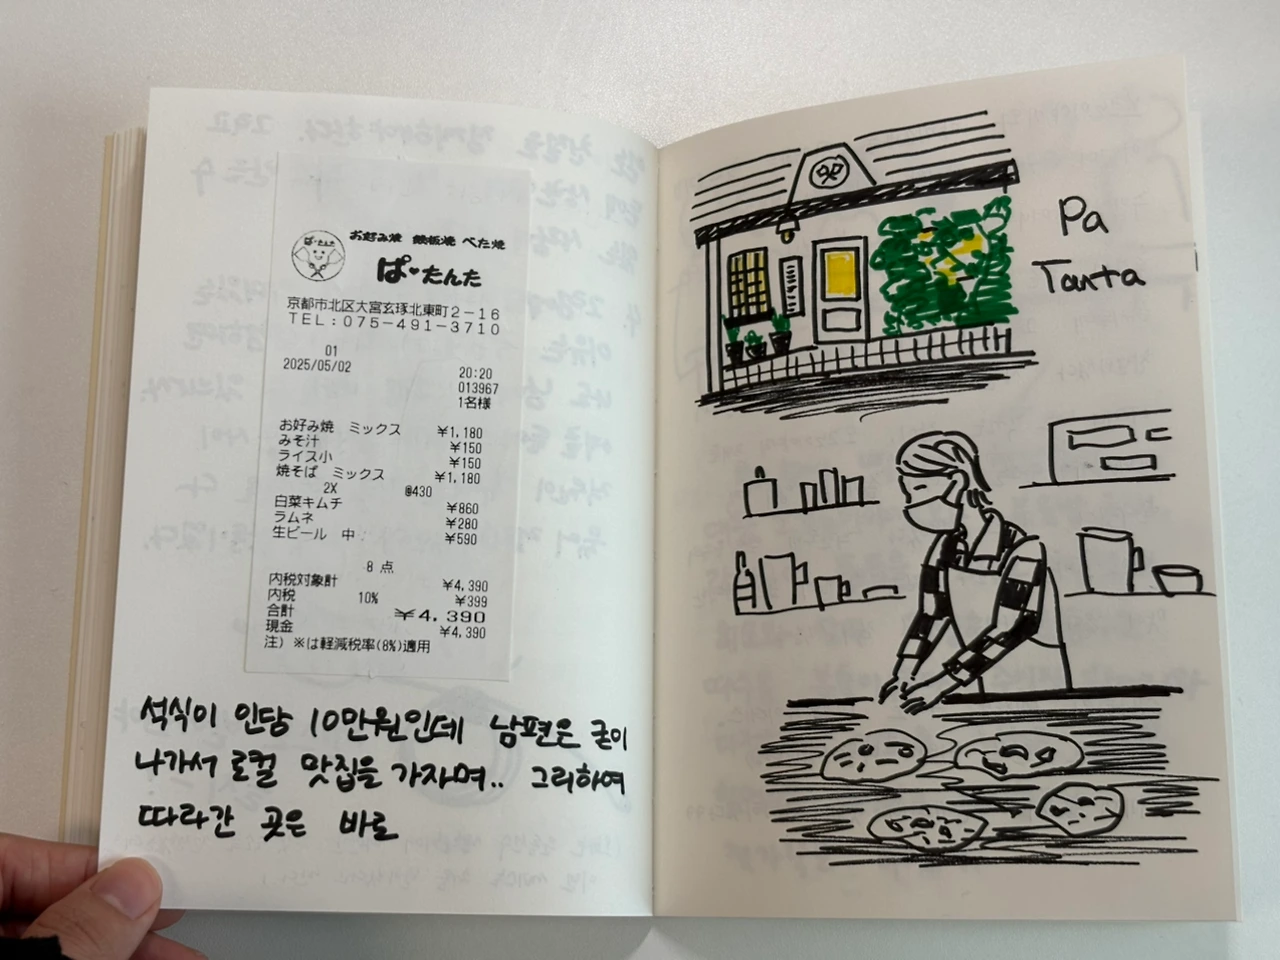 お好み焼 鉄板焼 べた焼
ぱ・たんた
京都市北区大宮玄琢北東町2-16
TEL:075-491-3710
01
2025/05/02 20:20
013967
1名様
お好み焼 ミックス ¥1,180
みそ汁 ¥150
ライス小 ¥150
焼そば ミックス ¥1,180
2X @430
白菜キムチ ¥860
ラムネ ¥280
生ビール 中 ¥590
8 点
内税対象計 ¥4,390
内税 10% ¥399
合計 ¥4,390
現金 ¥4,390
注) ※は軽減税率(8%)適用
석식이 인당 10만원인데 남편은 굳이
나가서 로컬 맛집을 가자며.. 그리하여
따라간 곳은 바로
Pa
Tanta